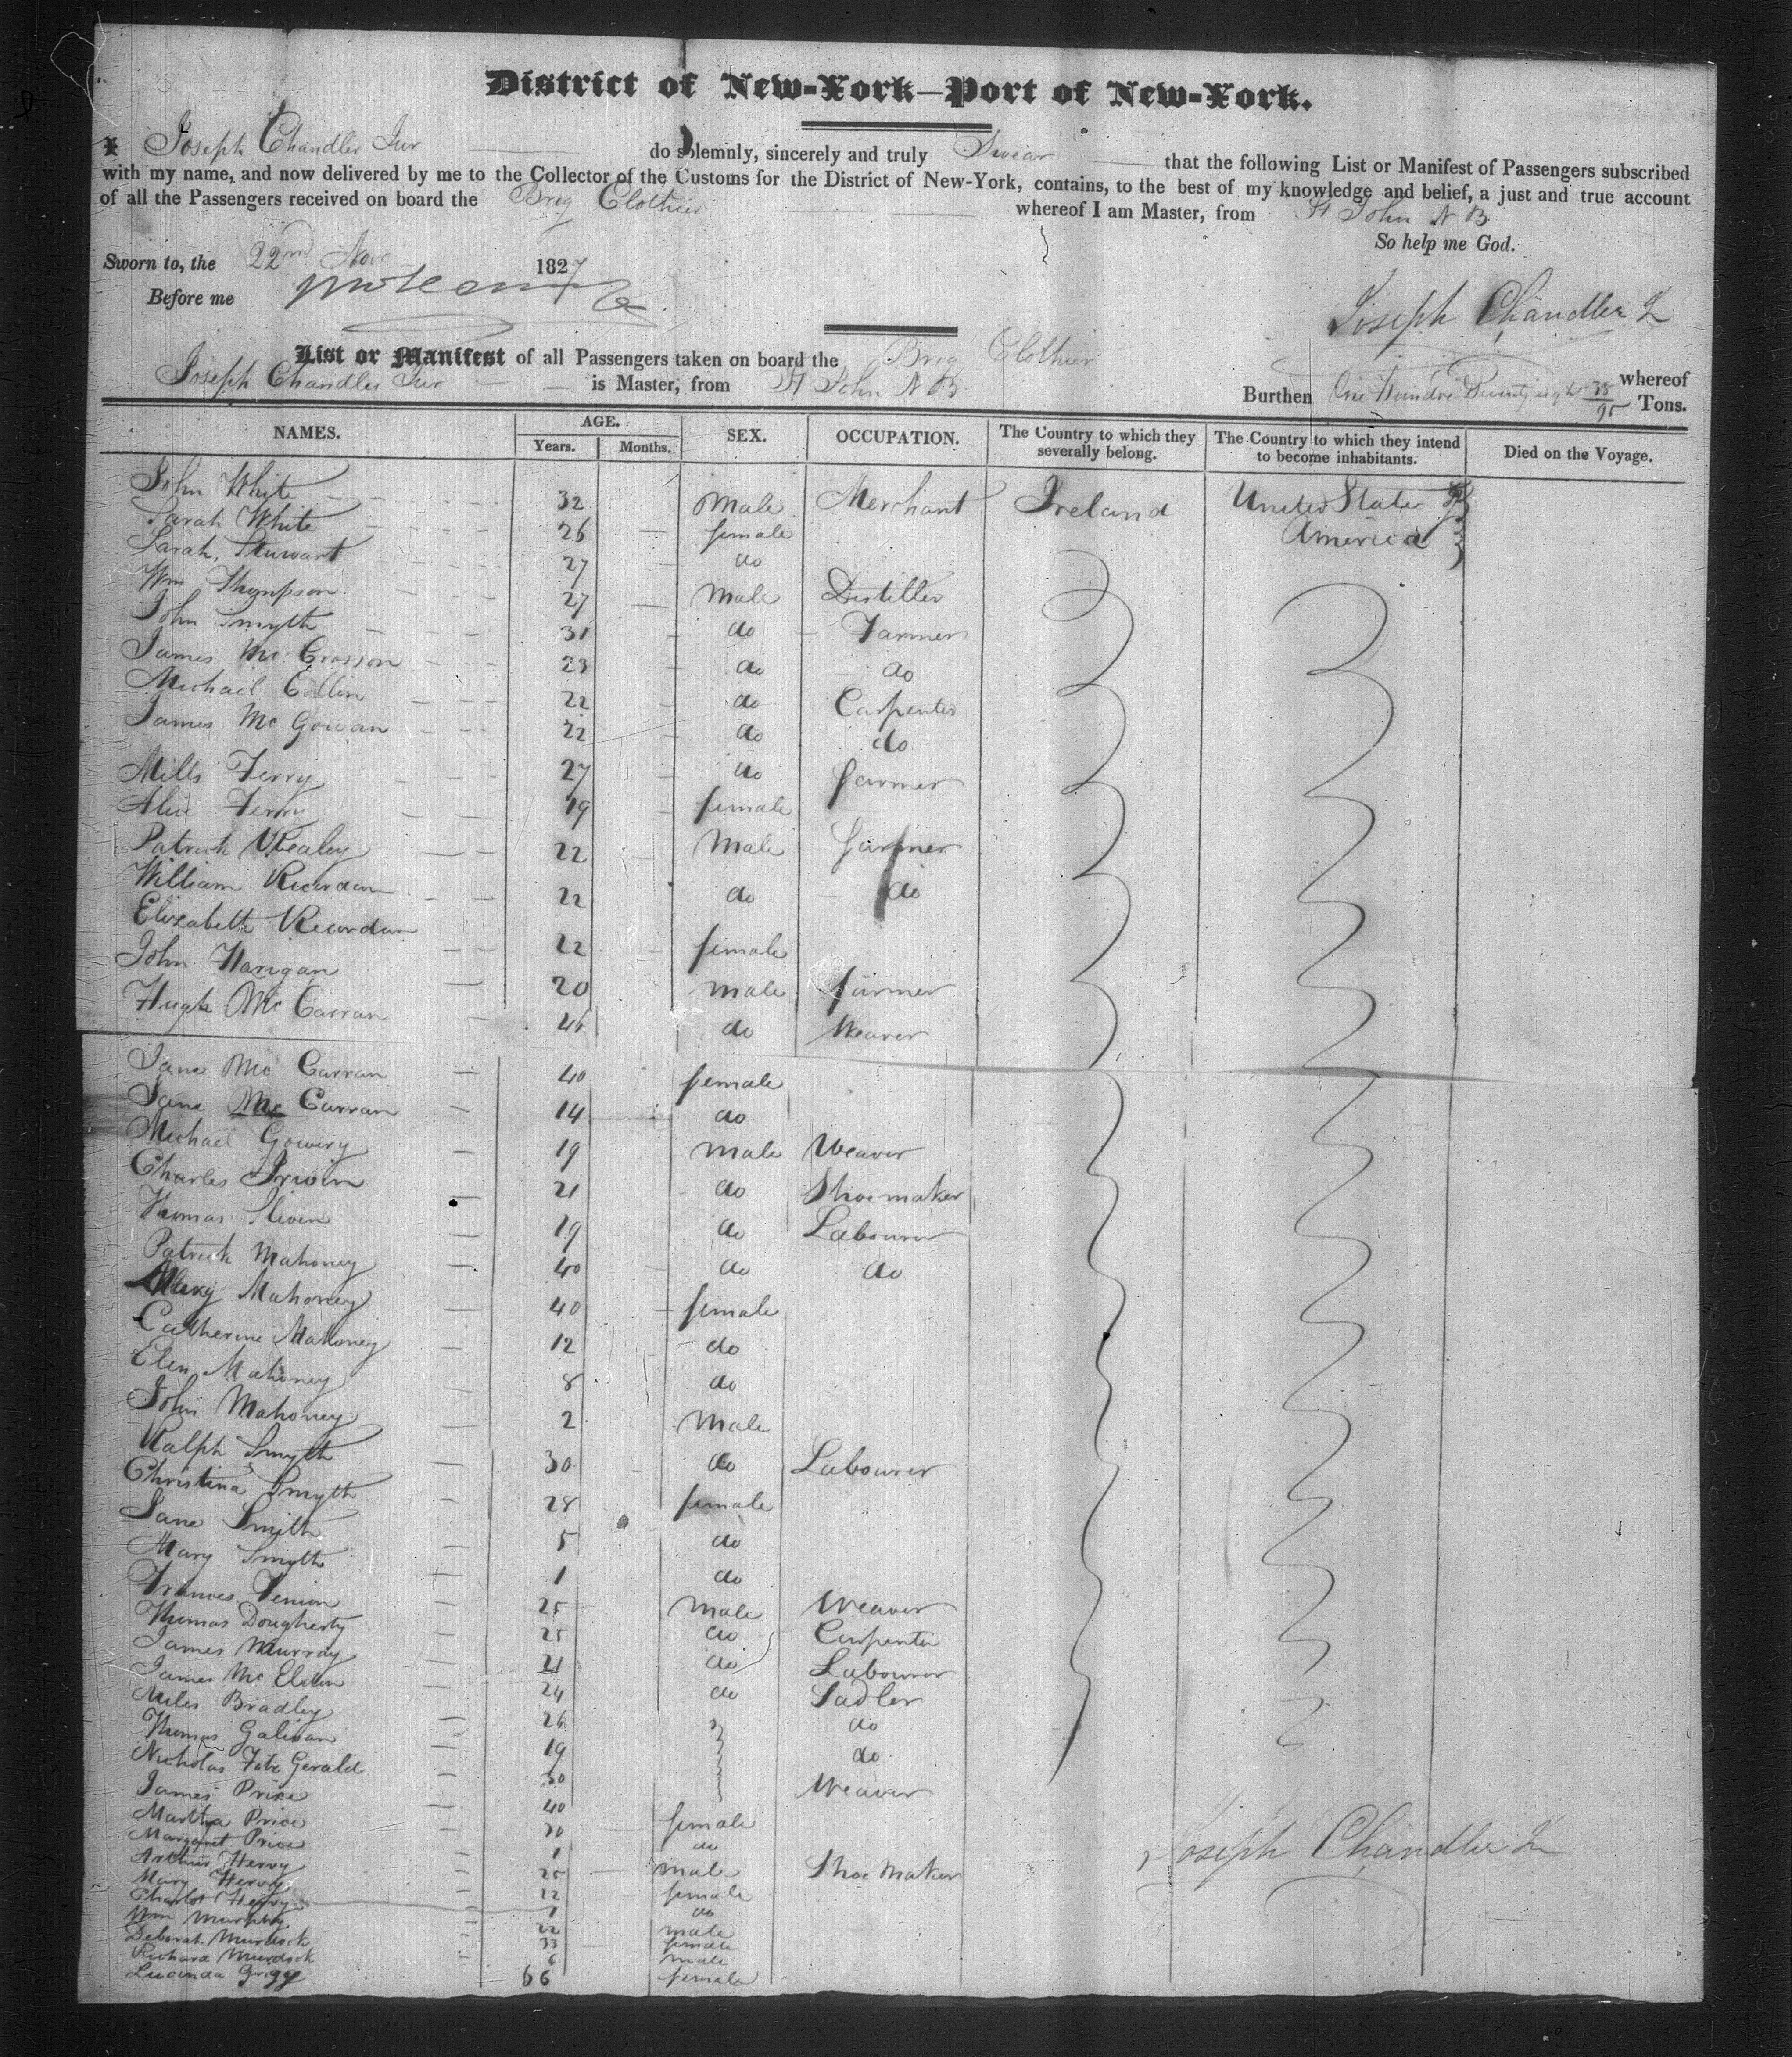 District of New-York—Port of New-York.
I Joseph Chandler Jur do solemnly, sincerely and truly Swear that the following List or Manifest of Passengers subscribed
with my name, and now delivered by me to the Collector of the Customs for the District of New-York, contains, to the best of my knowledge and belief, a just and true account
of all the Passengers received on board the Brig Clothier whereof I am Master, from St John N B
So help me God.
Sworn to, the 22nd Nov 1827
Before me
Joseph Chandler Jr
List or Manifest of all Passengers taken on board the Brig Clothier whereof
Joseph Chandler Jur is Master, from St John N B Burthen One Hundred Twenty eight 35/95 Tons.
NAMES. AGE. Years. Months. SEX. OCCUPATION. The Country to which they severally belong. The Country to which they intend to become inhabitants. Died on the Voyage.
John White 32 Male Merchant Ireland United States of
Sarah White 26 female America
Sarah Stuwart 27 do
Wm Thompson 27 Male Distiller
John Smyth 31 do Farmer
James Mc Crosson 23 do do
Michail Collin 22 do Carpenter
James Mc Gowan 22 do do
Mills Ferry 27 do farmer
Alice Ferry 19 female
Patrick Vealey 22 Male farmer
William Reardan 22 do do
Elizabeth Reardan 22 female
John Harigan 20 male farmer
Hugh Mc Carran 46 do Weaver
Jane Mc Carran 40 female
Jane Mc Carran 14 do
Michail Gowery 19 Male Weaver
Charles Irwin 21 do Shoemaker
Thomas Sliven 19 do Labourer
Patrick Mahoney 40 do do
Mary Mahoney 40 female
Catherine Mahoney 12 do
Elen Mahoney 8 do
John Mahoney 2 Male
Ralph Smyth 30 do Labourer
Christina Smyth 28 female
Jane Smith 5 do
Mary Smyth 1 do
Frances Venion 25 Male Weaver
Thomas Dougherty 25 do Carpenter
James Murray 21 do Labourer
James Mc Eldun 24 do Sadler
Miles Bradley 26 do
Thomas Galivan 19 do
Nicholas Fitz Gerald 30 Weaver
James Price 40
Martha Price 30 female
Margaret Price 1 do
Arthur Hervy 25 male Shoe Maker
Mary Hervy 22 female
Charlot Hervy 1 do
Wm Murphy 22 male
Deborah Murdock 33 female
Richard Murdock 6 male
Lucinda Grigg 66 female
Joseph Chandler Jr